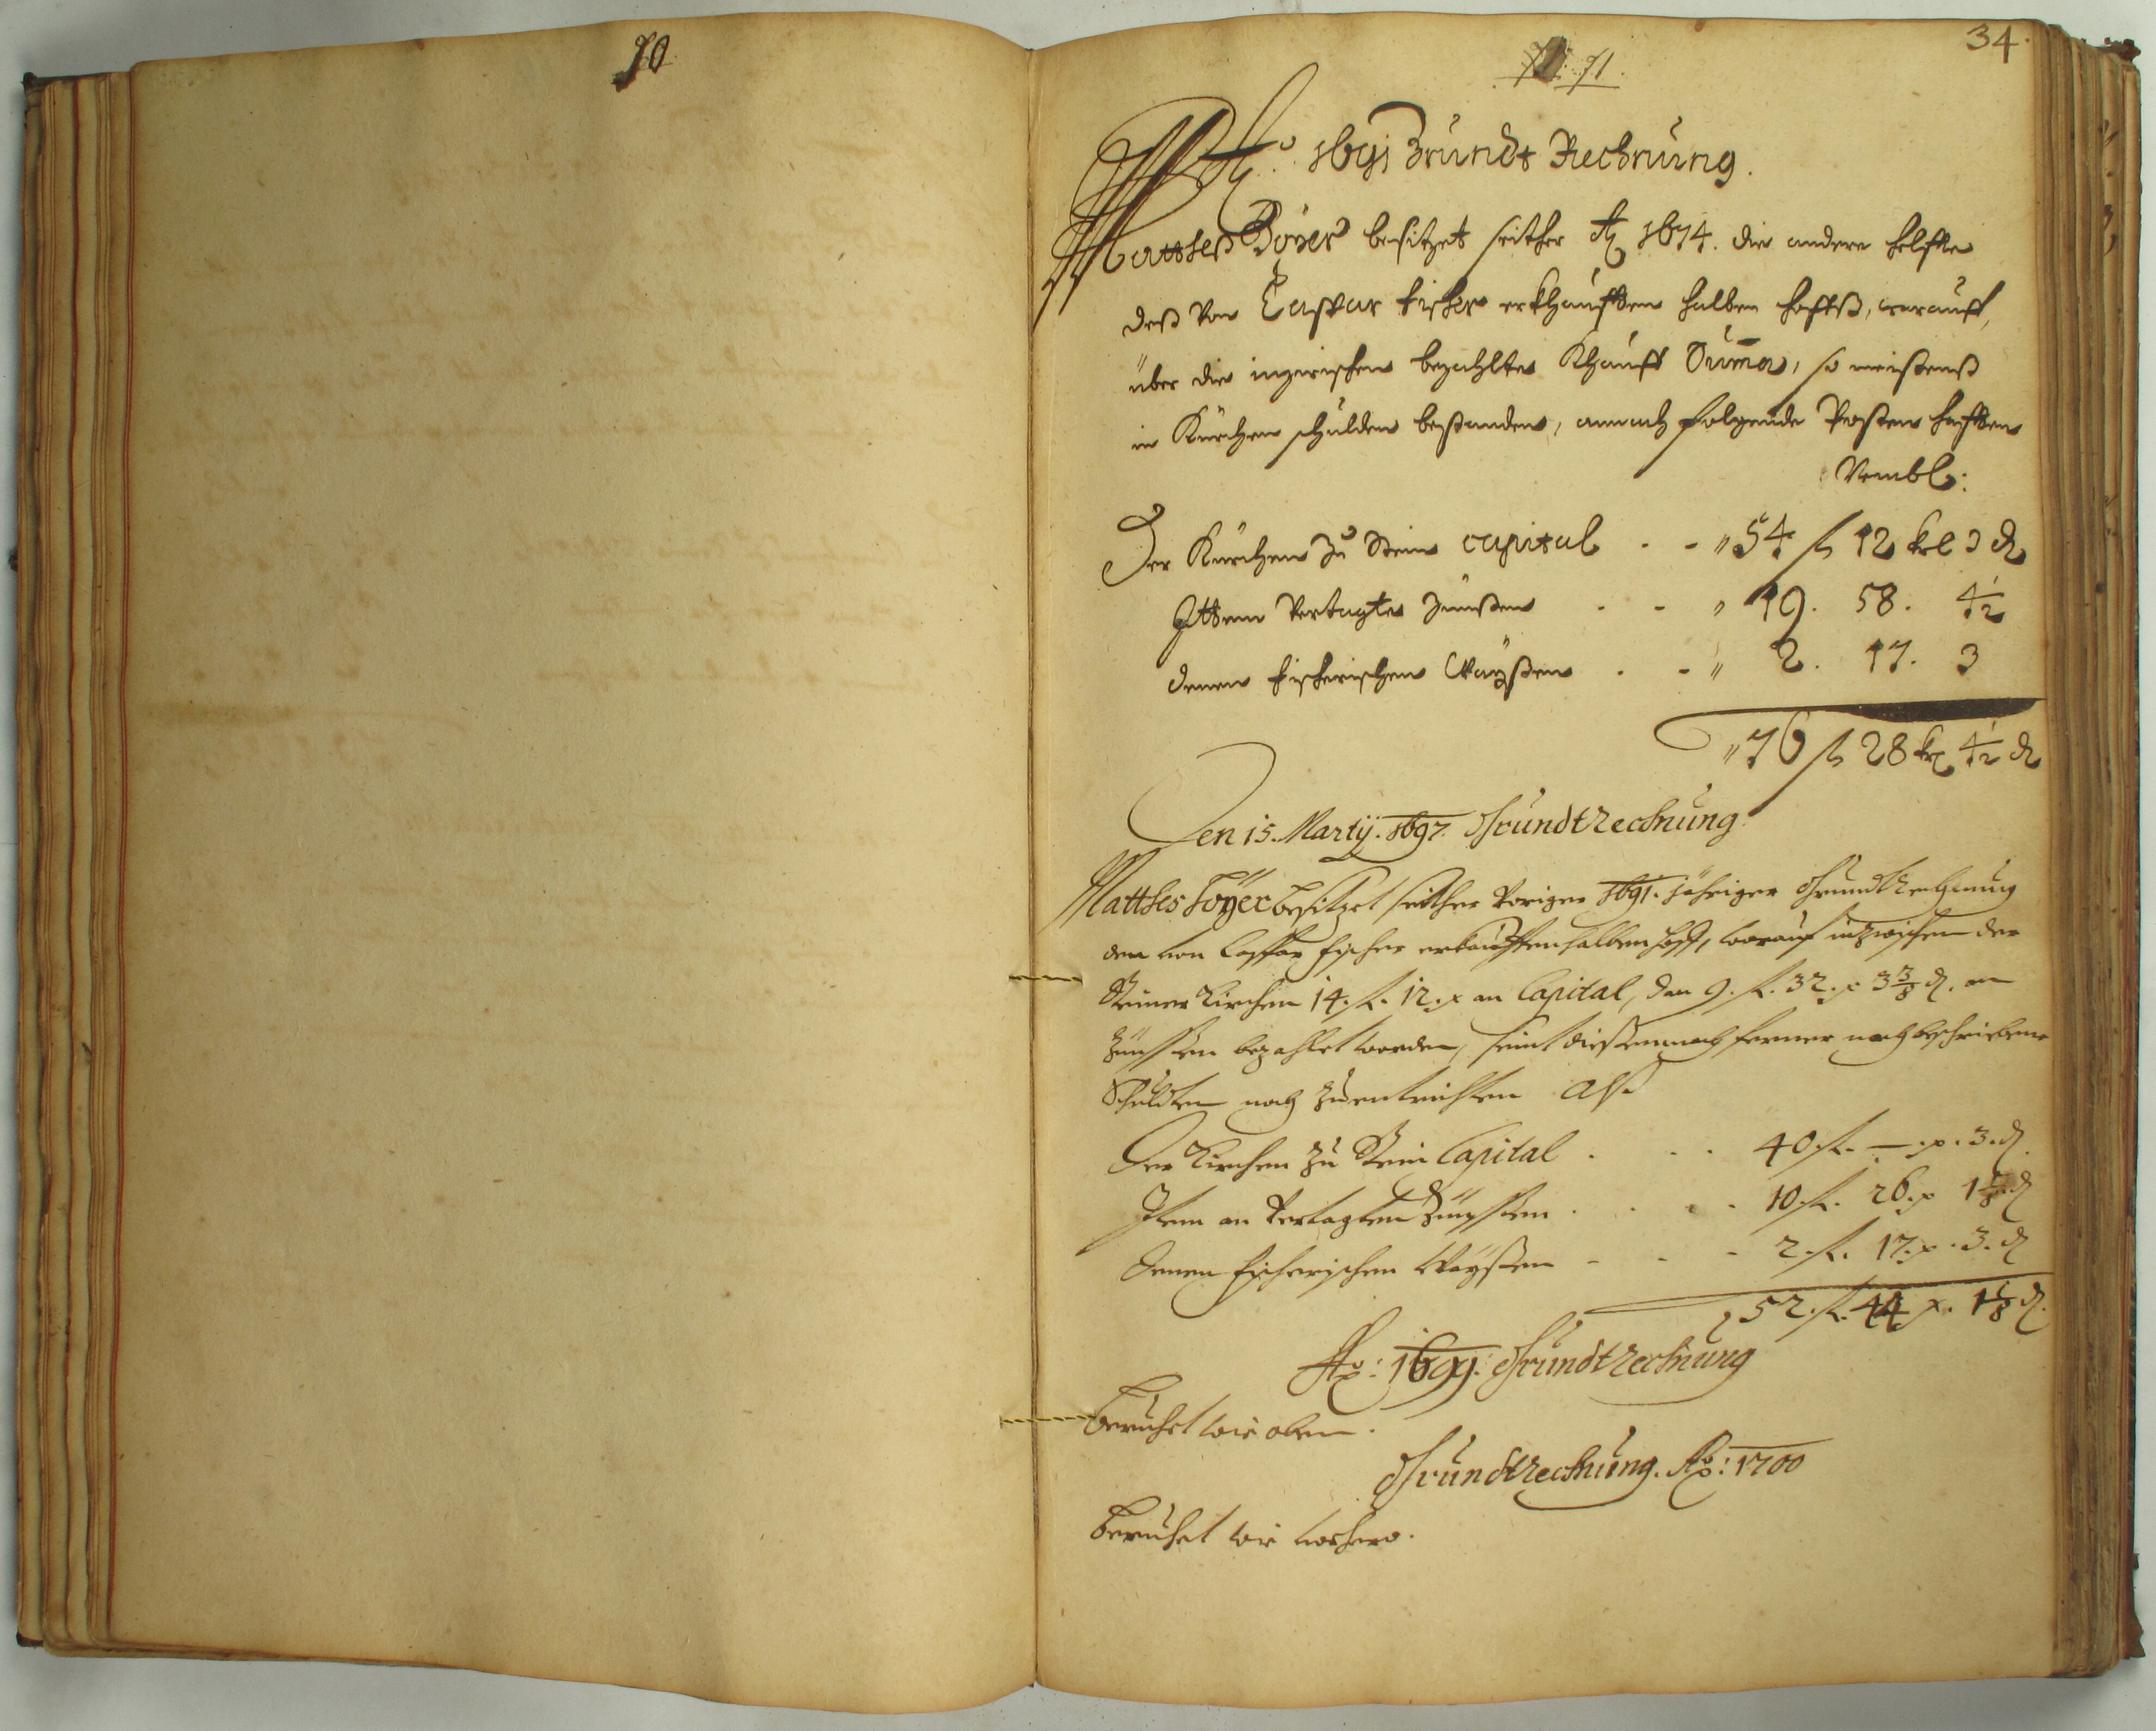 70
34.
71.
Ao. 1691 Grundt Rechnung.
Matthes Böyer besitzet seither Ao 1674. die andere helffte
deß von Caspar Fischer erkhaufften halben hoffß, worauff,
über die inzwischen bezahlte Khauff Suma, so meistenß
in Kürchen schulden bestanden, annoch folgende Posten hafften
Nembl:
Der Kürchen zu Stein capital - - " 54 fl 12 krl 3 d
Ittem Vertagte Zünnßen - - " 19. 58. 4½
denen Fischerischen Waÿßen - - " 2. 17. 3
" 76 fl 28 kr 4½ d
Den 15. Martÿ. 1697. Grundtrechnung
Matthes Böÿer besitzet seither voriger 1691. Jähriger Grundtrechnung
den von Caspar Fischer erkaufften halben Hoff, worauf inzwischen der
Steiner Kirchen 14. fl. 12. x an Capital, dan 9. fl. 32. x 3⅜ d. an
Zünssen bezahlet worden, seint diesemnach ferner nachbeschriebene
Schulden noch zuentrichten Alß
Der Kirchen zu Stein Capital . . . 40. fl. —. x. 3. d.
Item an Vertagten Zünssen . . . . 10. fl. 26. x 1⅛ d
Denen Fischerischen Waÿßen - - - 2. fl. 17. x. 3. d
52. fl. 44 x. 1⅛ d.
Ao: 1699. Grundtrechnung
Beruhet wie oben.
Grundtrechnung. Ao: 1700
Beruhet wie vorhero.